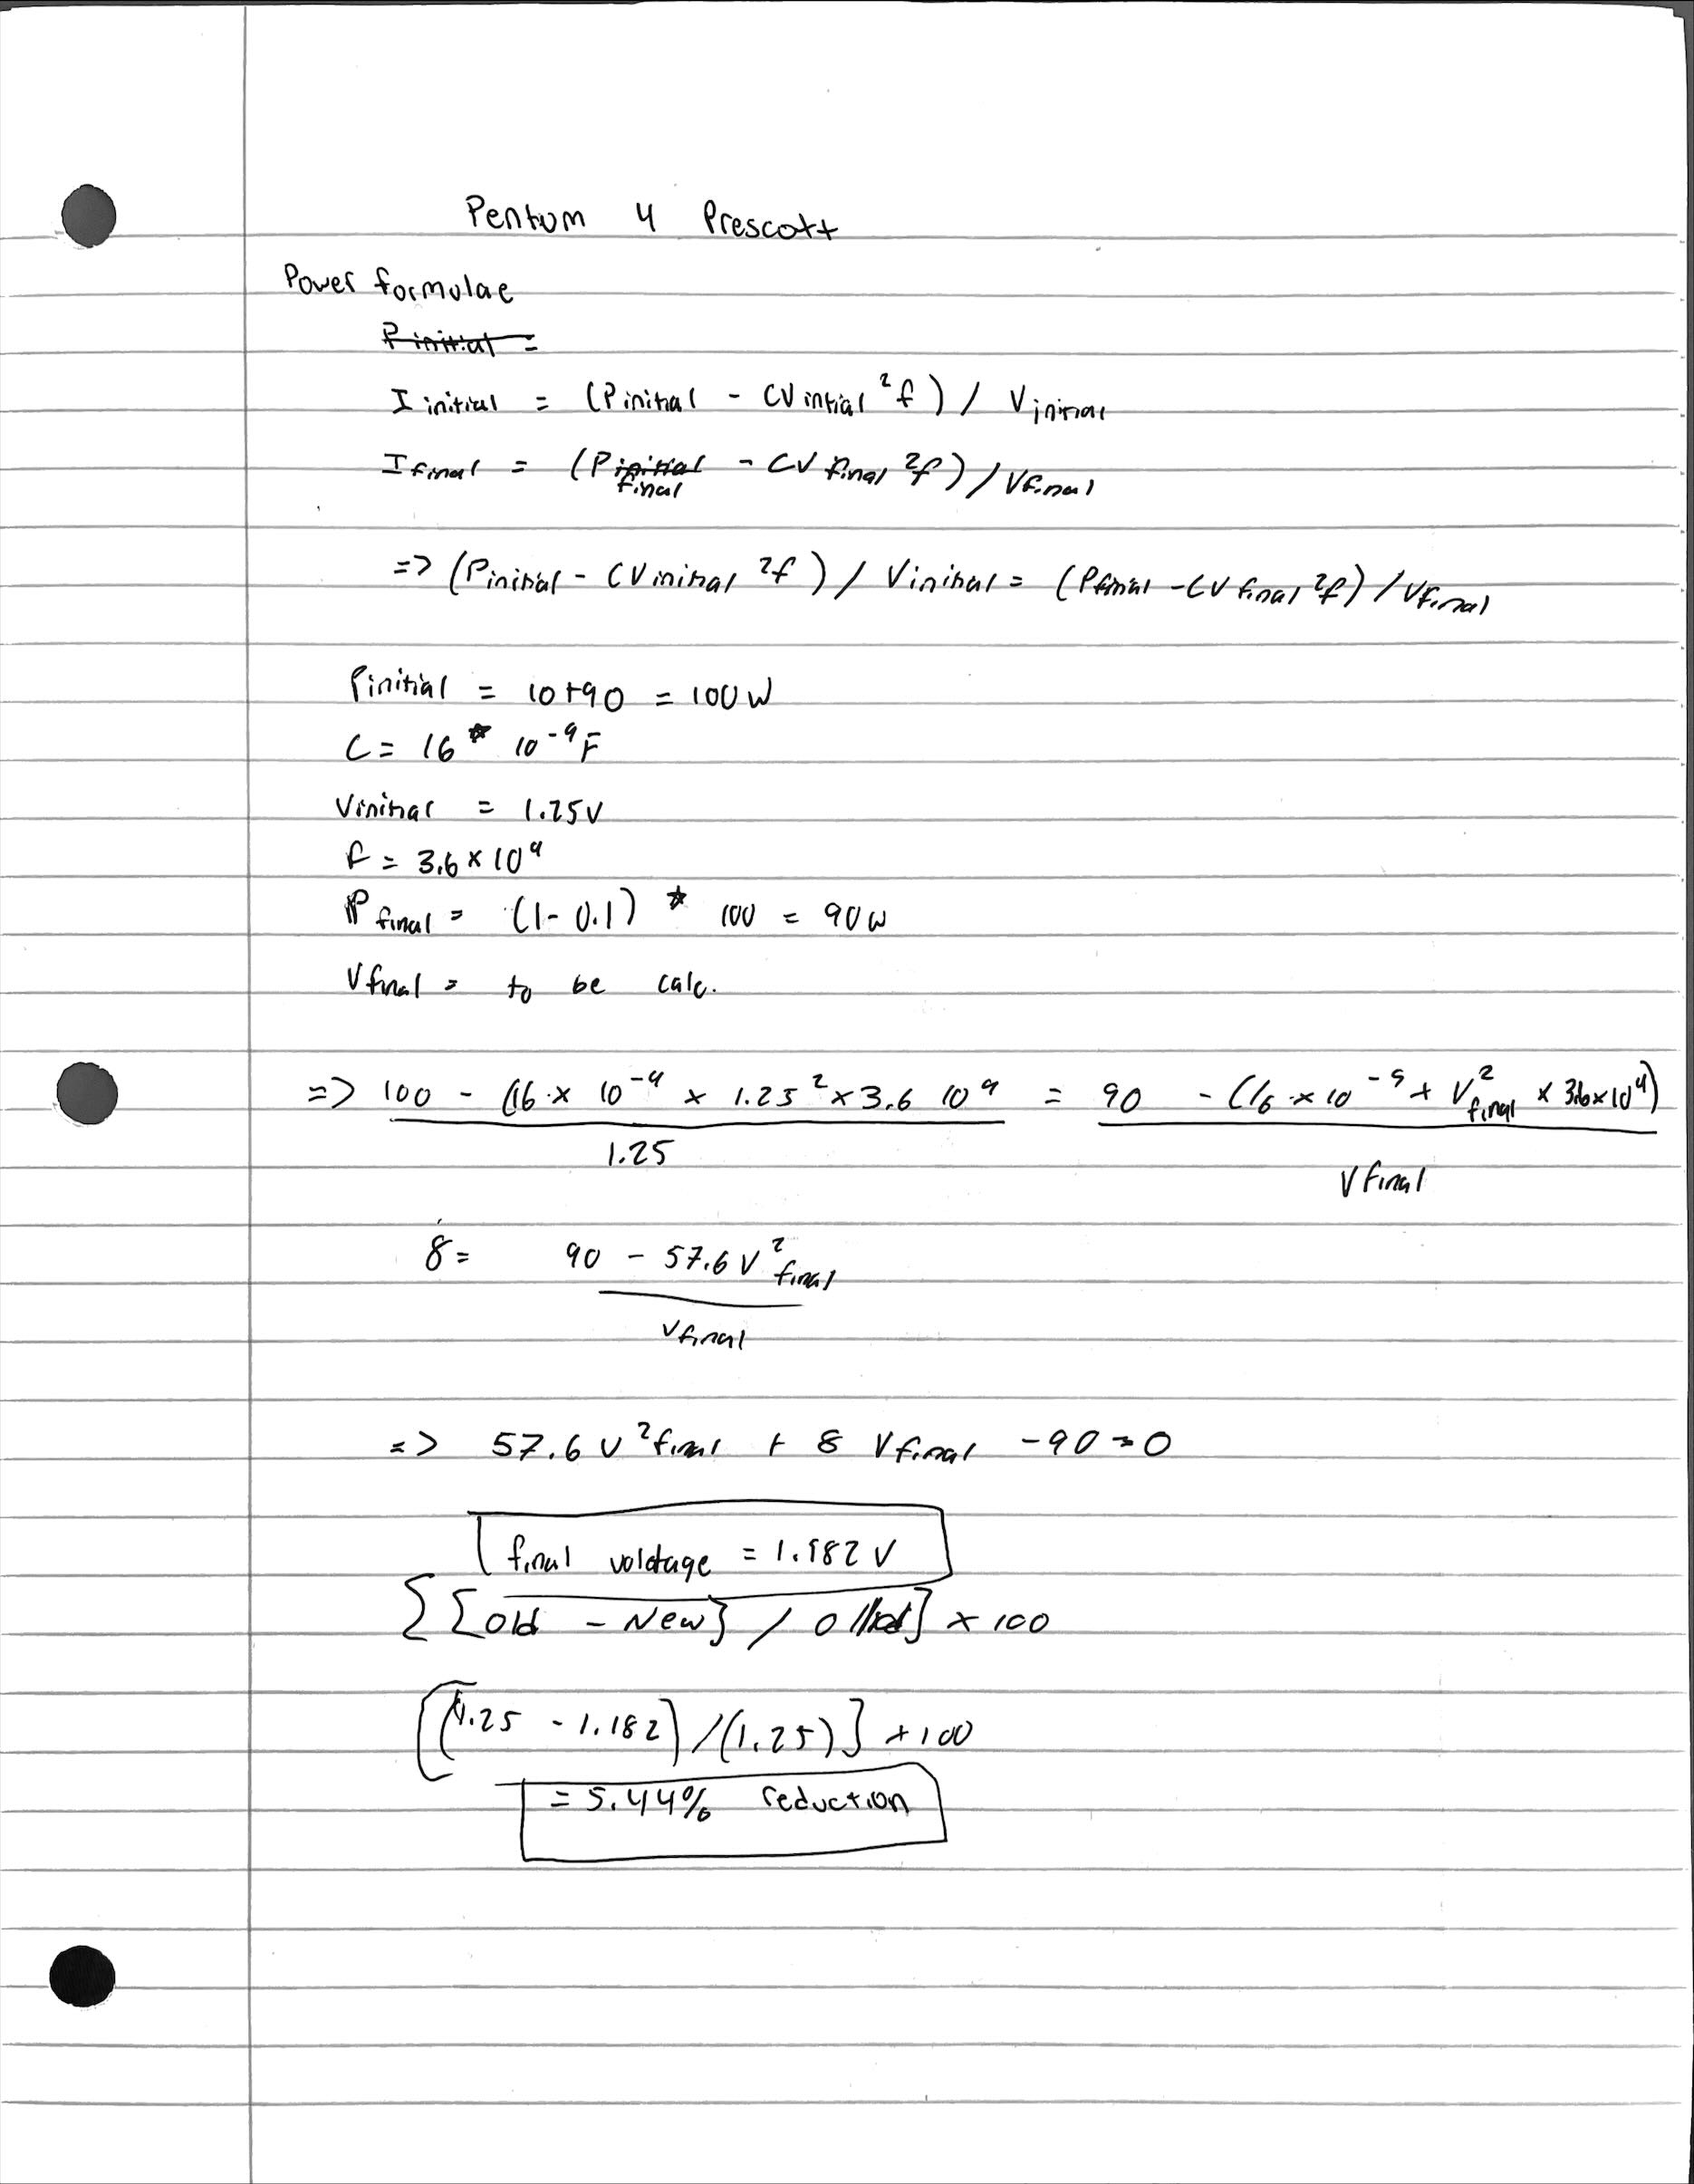 Pentum 4 Prescott
Power formulae
P initial =
I initial = (P initial - CV intial ² f) / V initial
I final = (P initial final - CV final ² f) / V final
=> (P initial - CV initial ² f) / V initial = (P final - CV final ² f) / V final
P initial = 10+90 = 100 W
C = 16 * 10⁻⁹ F
V initial = 1.25 V
f = 3.6 × 10⁹
P final = (1 - 0.1) * 100 = 90 W
V final = to be calc.
=> 100 - (16 × 10⁻⁹ × 1.25² × 3.6 10⁹ = 90 - (16 × 10⁻⁹ × V² final × 3.6 × 10⁹)
1.25 V final
8 = 90 - 57.6 V² final
V final
=> 57.6 V² final + 8 V final - 90 = 0
final voldtage = 1.182 V
[[Old - New] / Old] × 100
[(1.25 - 1.182) / (1.25)] × 100
= 5.44% reduction